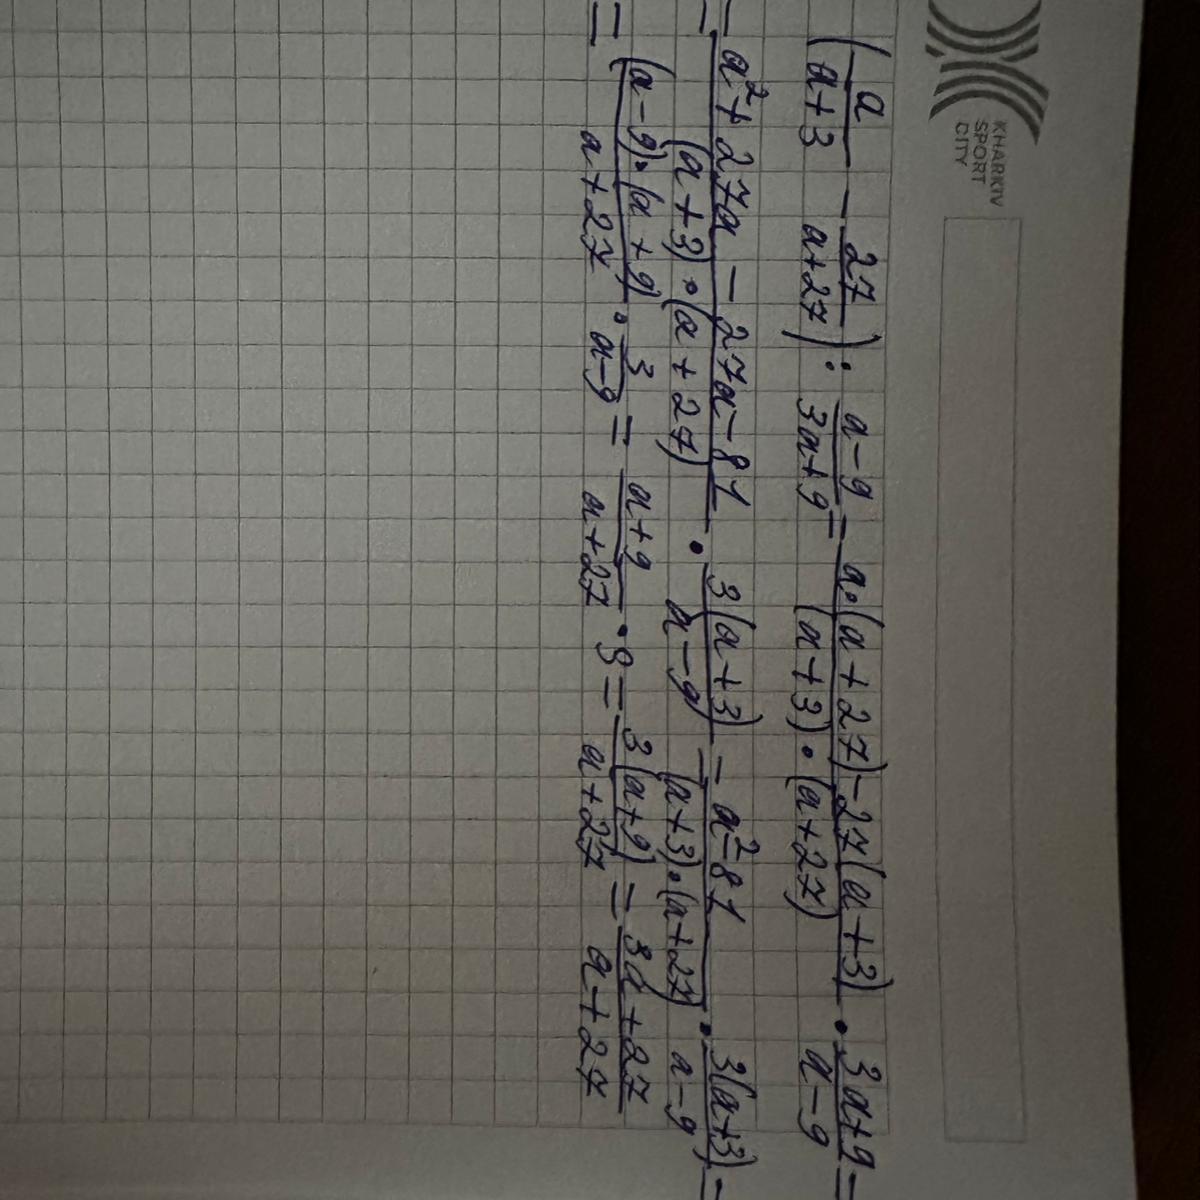 KHARKIV
SPORT
CITY
(a/(a+3) - 27/(a+27)) : (a-9)/(3a+9) = (a·(a+27)-27(a+3))/((a+3)·(a+27)) · (3a+9)/(a-9) =
= (a²+27a-27a-81)/((a+3)·(a+27)) · (3(a+3))/(a-9) = (a²-81)/((a+3)·(a+27)) · (3(a+3))/(a-9) =
= ((a-9)·(a+9))/(a+27) · 3/(a-9) = (a+9)/(a+27) · 3 = (3(a+9))/(a+27) = (3a+27)/(a+27)